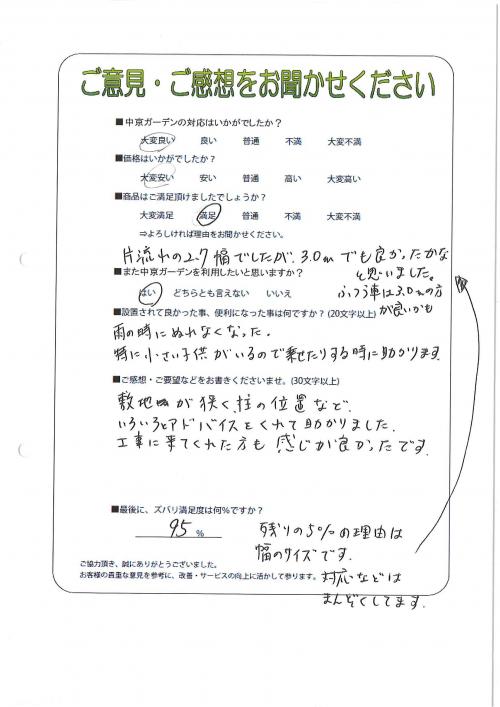 ご意見・ご感想をお聞かせください
■中京ガーデンの対応はいかがでしたか？
大変良い 良い 普通 不満 大変不満
■価格はいかがでしたか？
大変安い 安い 普通 高い 大変高い
■商品はご満足頂けましたでしょうか？
大変満足 満足 普通 不満 大変不満
⇒よろしければ理由をお聞かせください。
片流れの2.7幅でしたが、3.0mでも良かったかな
と思いました。
■また中京ガーデンを利用したいと思いますか？
はい どちらとも言えない いいえ
ふつう車は3.0mの方
が良いかも
■設置されて良かった事、便利になった事は何ですか？(20文字以上)
雨の時にぬれなくなった。
特に小さい子供がいるので乗せたりする時に助かります
■ご感想・ご要望などをお書きくださいませ。(30文字以上)
敷地が狭く、柱の位置など、
いろいろとアドバイスをくれて助かりました。
工事に来てくれた方も感じが良かったです。
■最後に、ズバリ満足度は何％ですか？
95 %
残りの5%の理由は
幅のサイズです。
対応などは
まんぞくしてます。
ご協力頂き、誠にありがとうございました。
お客様の貴重な意見を参考に、改善・サービスの向上に活かして参ります。